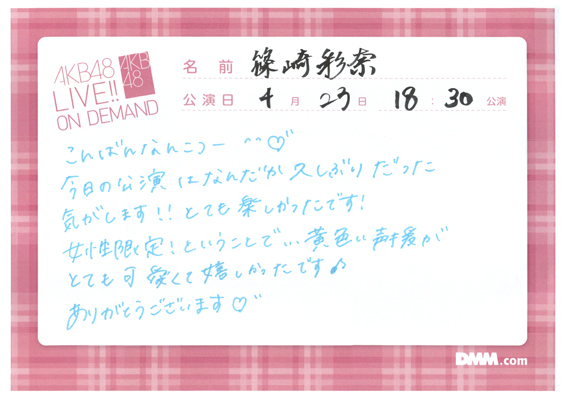 AKB48
LIVE!!
ON DEMAND
AKB
48
名前 篠崎彩奈
公演日 4月23日 18:30公演
こんばんなんこつー ^^♡
今日の公演はなんだか久しぶりだった
気がします!!とても楽しかったです!
女性限定!ということで…黄色い声援が
とても可愛くて嬉しかったです♪
ありがとうございます♡
DMM.com